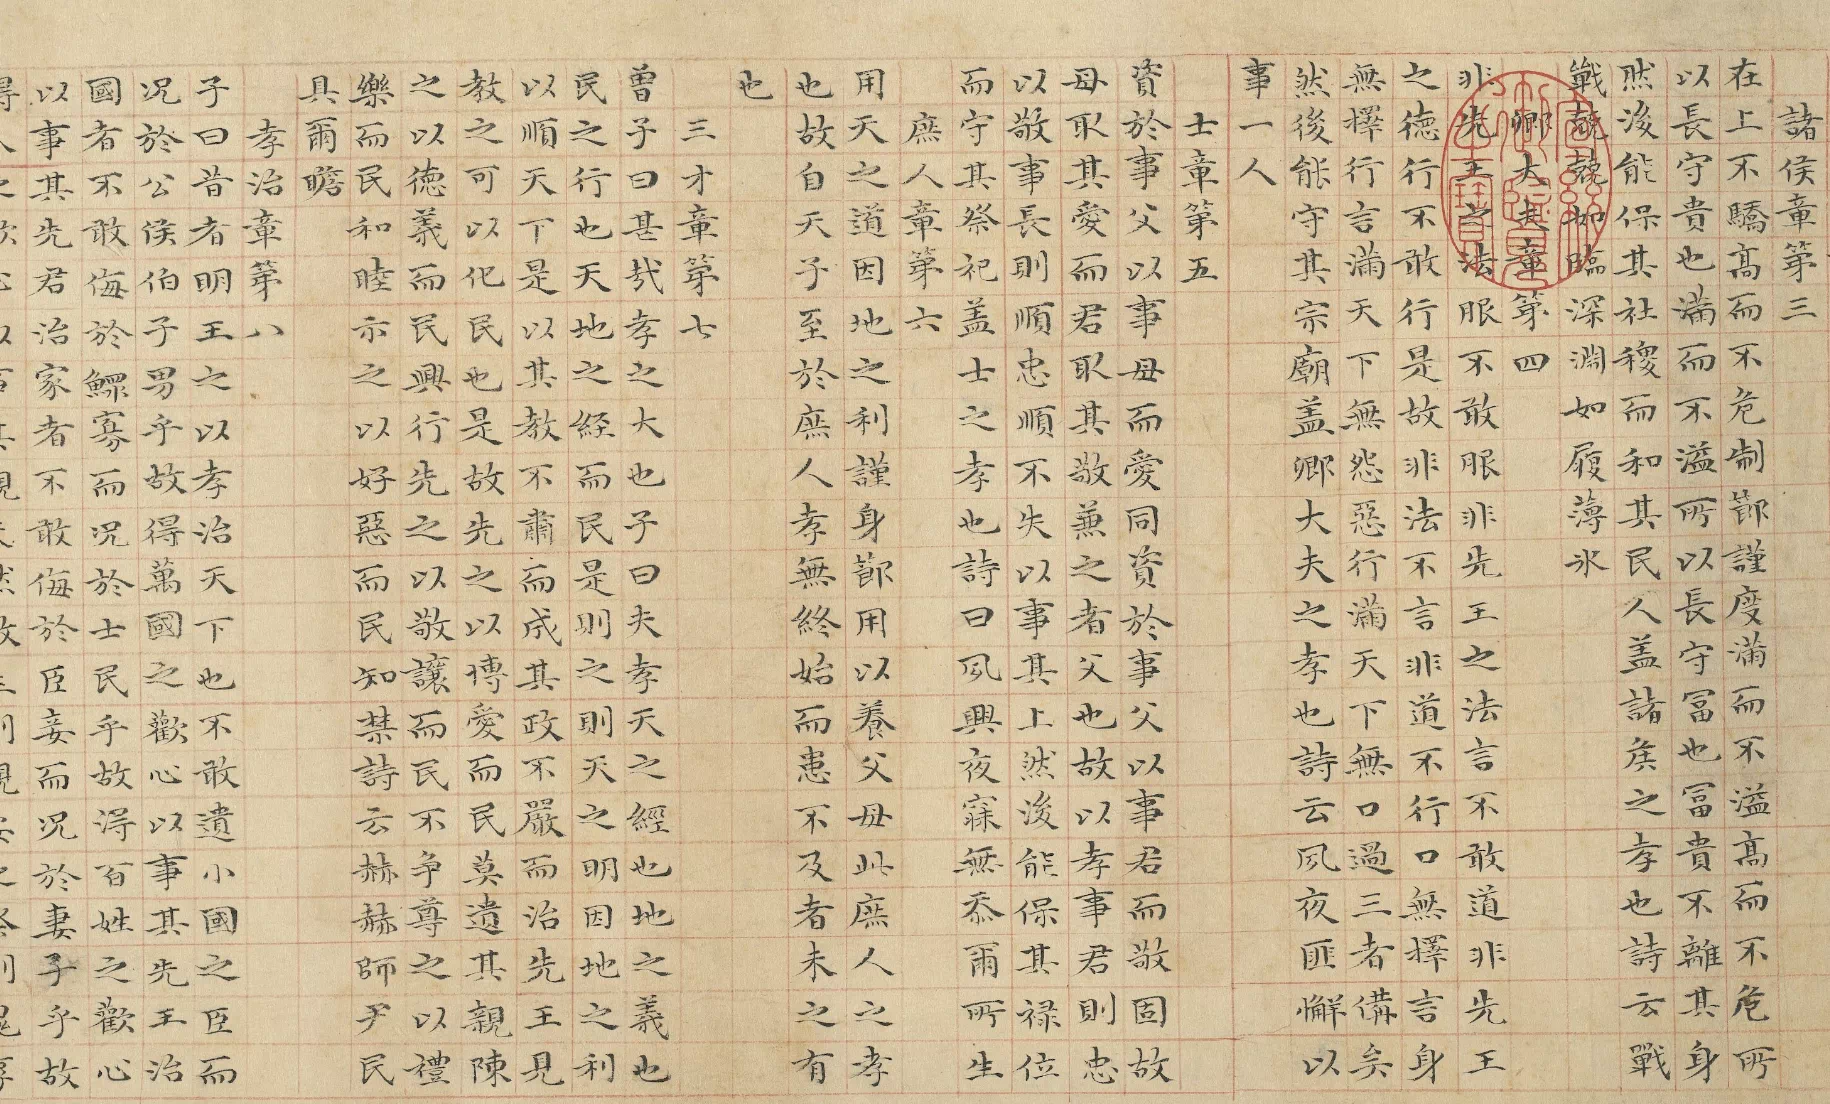 諸侯章第三
在上不驕高而不危制節謹度滿而不溢高而不危所
以長守貴也滿而不溢所以長守冨也冨貴不離其身
然後能保其社稷而和其民人盖諸侯之孝也詩云戰
戰兢兢如臨深淵如履薄氷
卿大夫章第四
非先王之法服不敢服非先王之法言不敢道非先王
之德行不敢行是故非法不言非道不行口無擇言身
無擇行言滿天下無怨惡行滿天下無口過三者備矣
然後能守其宗廟盖卿大夫之孝也詩云夙夜匪懈以
事一人
士章第五
資於事父以事母而愛同資於事父以事君而敬固故
母取其愛而君取其敬兼之者父也故以孝事君則忠
以敬事長則順忠順不失以事其上然後能保其禄位
而守其祭祀盖士之孝也詩曰夙興夜寐無忝爾所生
庶人章第六
用天之道因地之利謹身節用以養父母此庶人之孝
也故自天子至於庶人孝無終始而患不及者未之有
也
三才章第七
曾子曰甚哉孝之大也子曰夫孝天之經也地之義也
民之行也天地之經而民是則之則天之明因地之利
以順天下是以其教不肅而成其政不嚴而治先王見
教之可以化民也是故先之以博愛而民莫遺其親陳
之以德義而民興行先之以敬讓而民不争尊之以禮
樂而民和睦示之以好惡而民知禁詩云赫赫師尹民
具爾瞻
孝治章第八
子曰昔者明王之以孝治天下也不敢遺小國之臣而
况於公侯伯子男乎故得萬國之歡心以事其先王治
國者不敢侮於鰥寡而况於士民乎故得百姓之歡心
以事其先君治家者不敢侮於臣妾而况於妻子乎故
得人之歡心以事其親夫然故生則親安之祭則鬼享